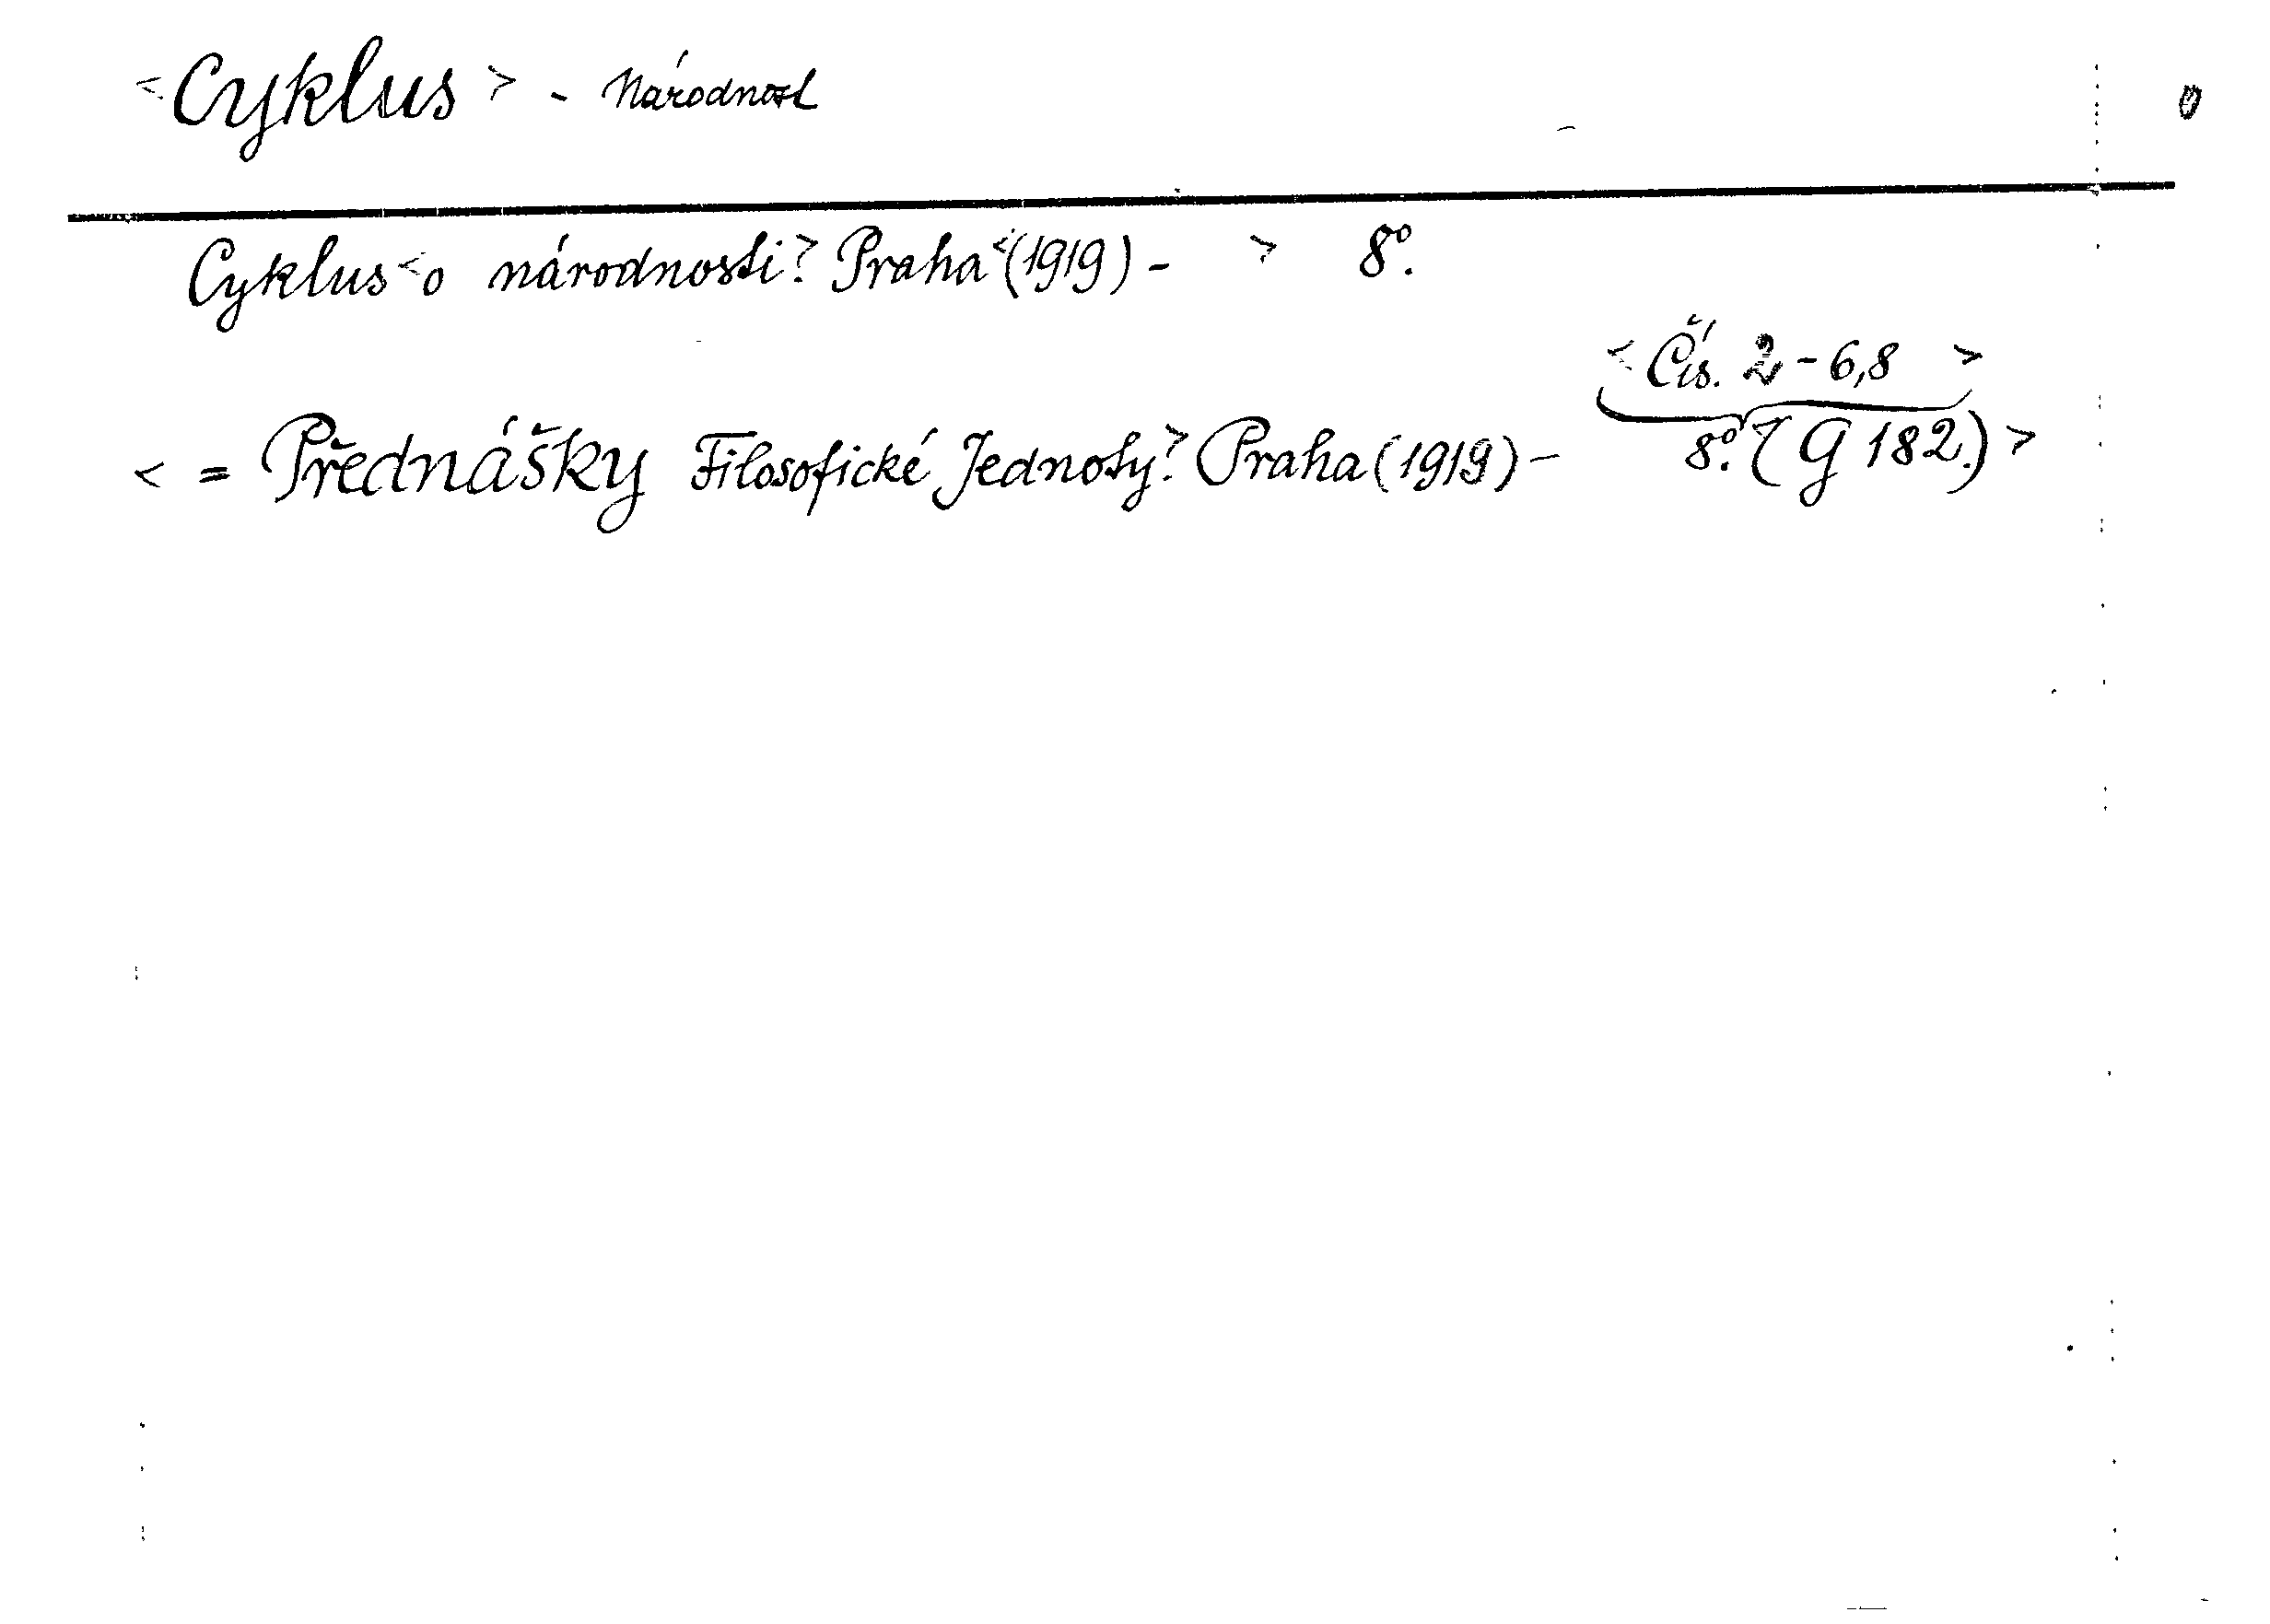 <Cyklus> - Národnost
Cyklus <o národnosti.> Praha <(1919) - > 8°.
<Čís. 2-6,8 >
< = Přednášky Filosofické Jednoty.> Praha (1919) - 8°. (G 182.) >